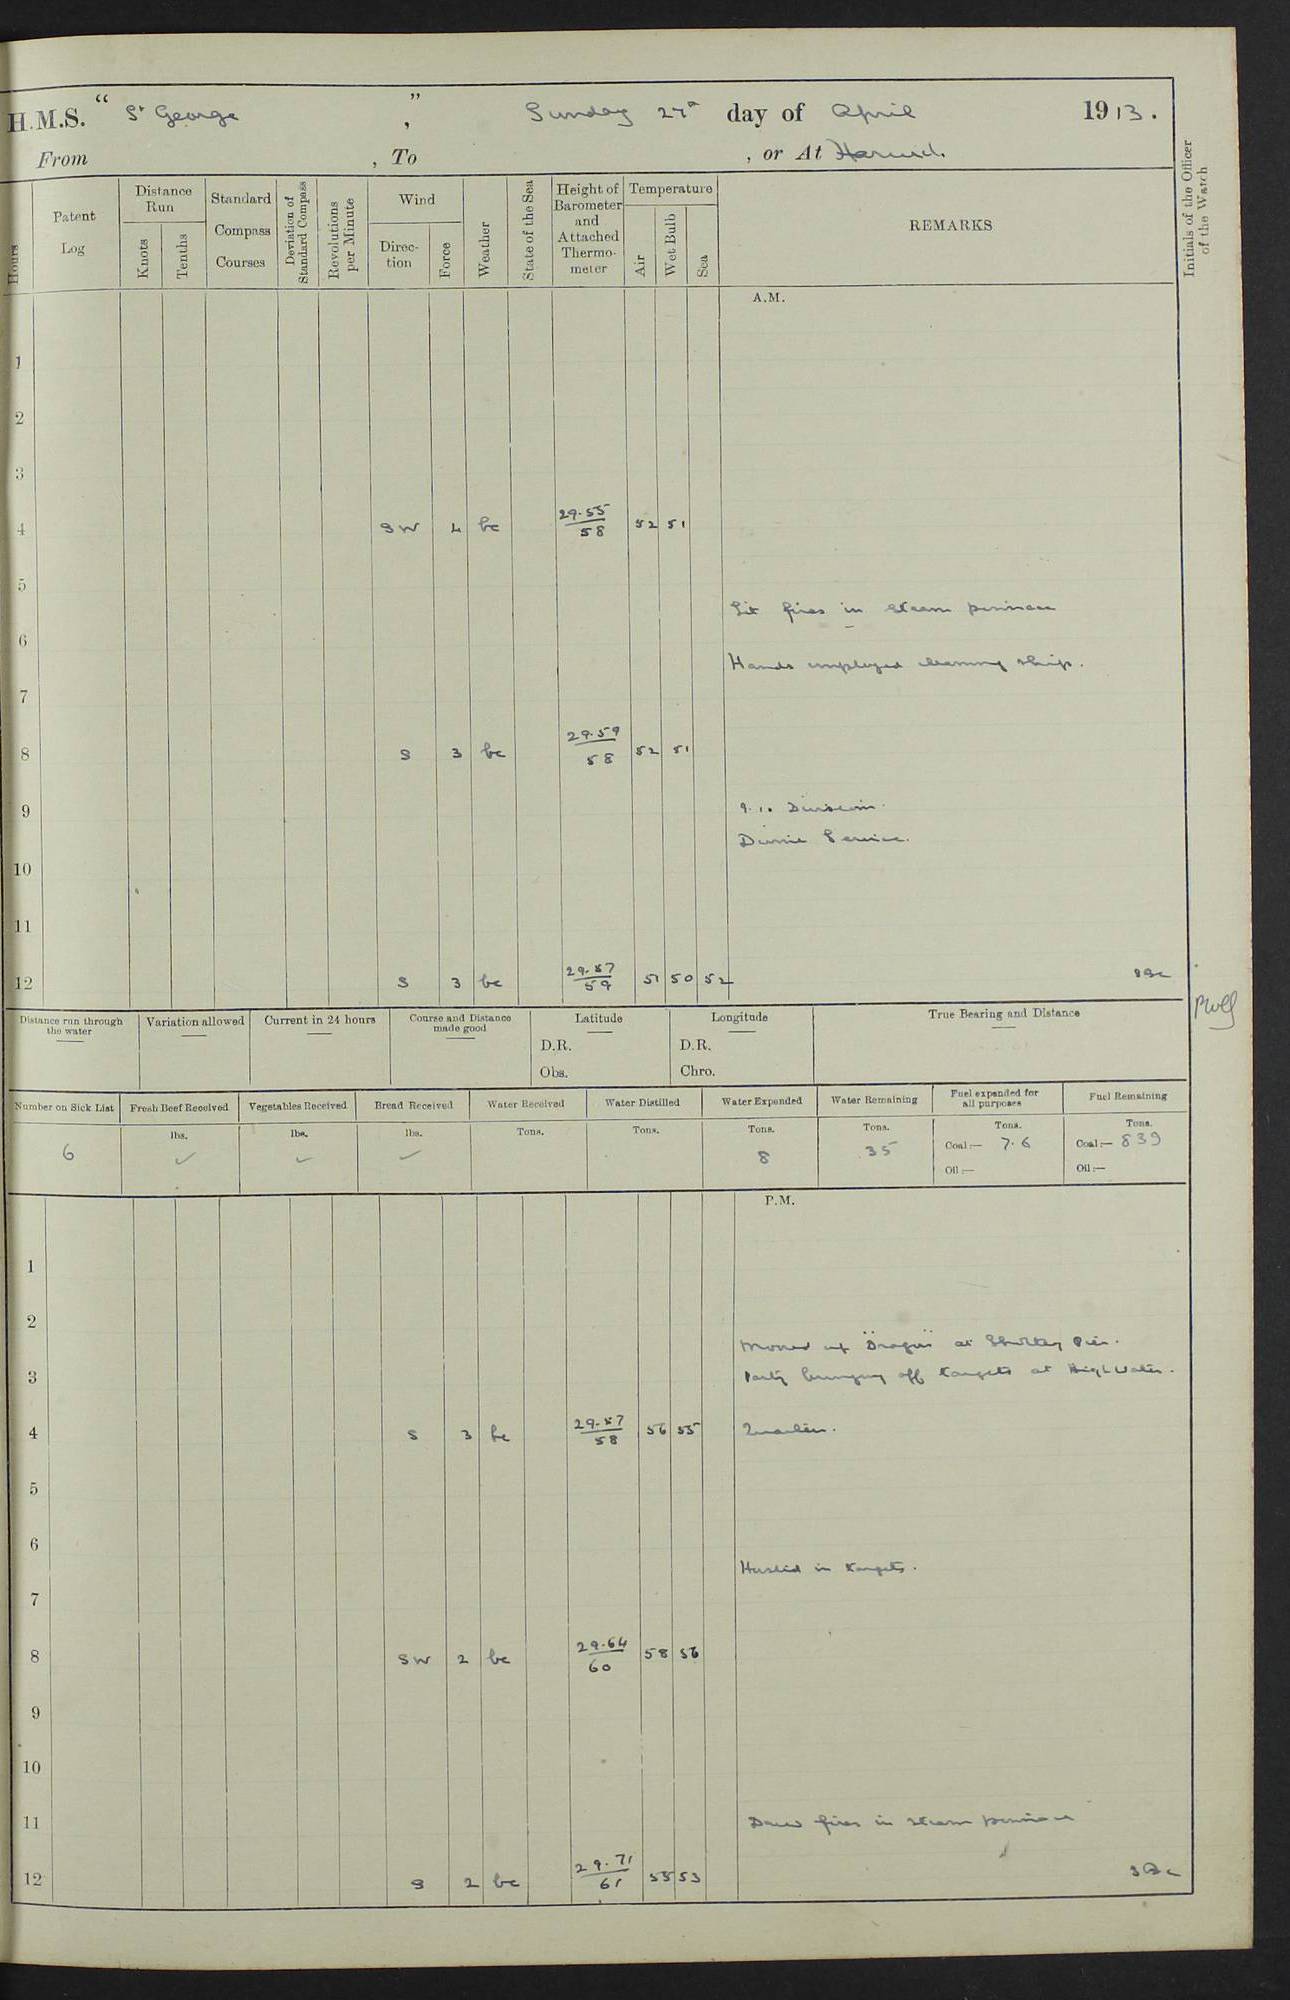 H.M.S. " St George " , Sunday 27th day of April 1913.
From , To , or At Harwich
Hours
Patent Log
Distance Run
Knots
Tenths
Standard Compass Courses
Deviation of Standard Compass
Revolutions per Minute
Wind
Direction
Force
Weather
State of the Sea
Height of Barometer and Attached Thermometer
Temperature
Air
Wet Bulb
Sea
REMARKS
Initials of the Officer of the Watch
A.M.
1
2
3
4 SW 4 bc 29.55/58 52 51
5
Lit fires in steam pinnace
6
Hands employed cleaning ship.
7
8 S 3 bc 29.59/58 52 51
9 9.10 Divisions.
Divine Service.
10
11
12 S 3 bc 29.57/59 51 50 52
Distance run through the water
Variation allowed
Current in 24 hours
Course and Distance made good
Latitude
D.R.
Obs.
Longitude
D.R.
Chro.
True Bearing and Distance
Number on Sick List 6
Fresh Beef Received lbs. ✓
Vegetables Received lbs. ✓
Bread Received lbs. ✓
Water Received Tons.
Water Distilled Tons.
Water Expended Tons. 8
Water Remaining Tons. 35
Fuel expended for all purposes Tons. Coal:— 7.6 Oil:—
Fuel Remaining Tons. Coal:— 839 Oil:—
P.M.
1
2
Moored up "Dragon" at Shotley Pier.
3 Party bringing off targets at High Water.
4 S 3 bc 29.57/58 56 55 Quarters.
5
6
Hoisted in targets.
7
8 SW 2 bc 29.64/60 58 56
9
10
11 Drew fires in steam pinnace
12 S 2 bc 29.71/61 55 53